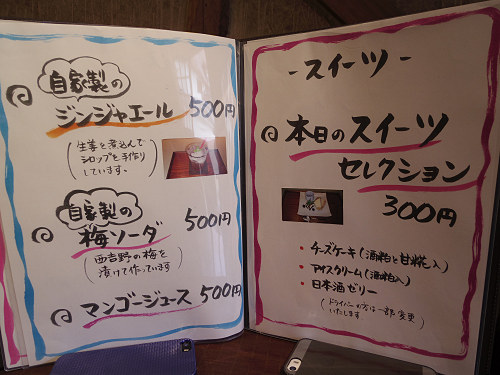 自家製の
ジンジャエール 500円
(生姜を煮込んで
シロップを手作り
しています。)
自家製の
梅ソーダ 500円
(西吉野の梅を
漬けて作っています)
マンゴージュース 500円
-スイーツ-
本日のスイーツ
セレクション
300円
・チーズケーキ(酒粕と甘糀入)
・アイスクリーム(酒粕入)
・日本酒ゼリー
(ドライバーの方は一部変更
いたします)